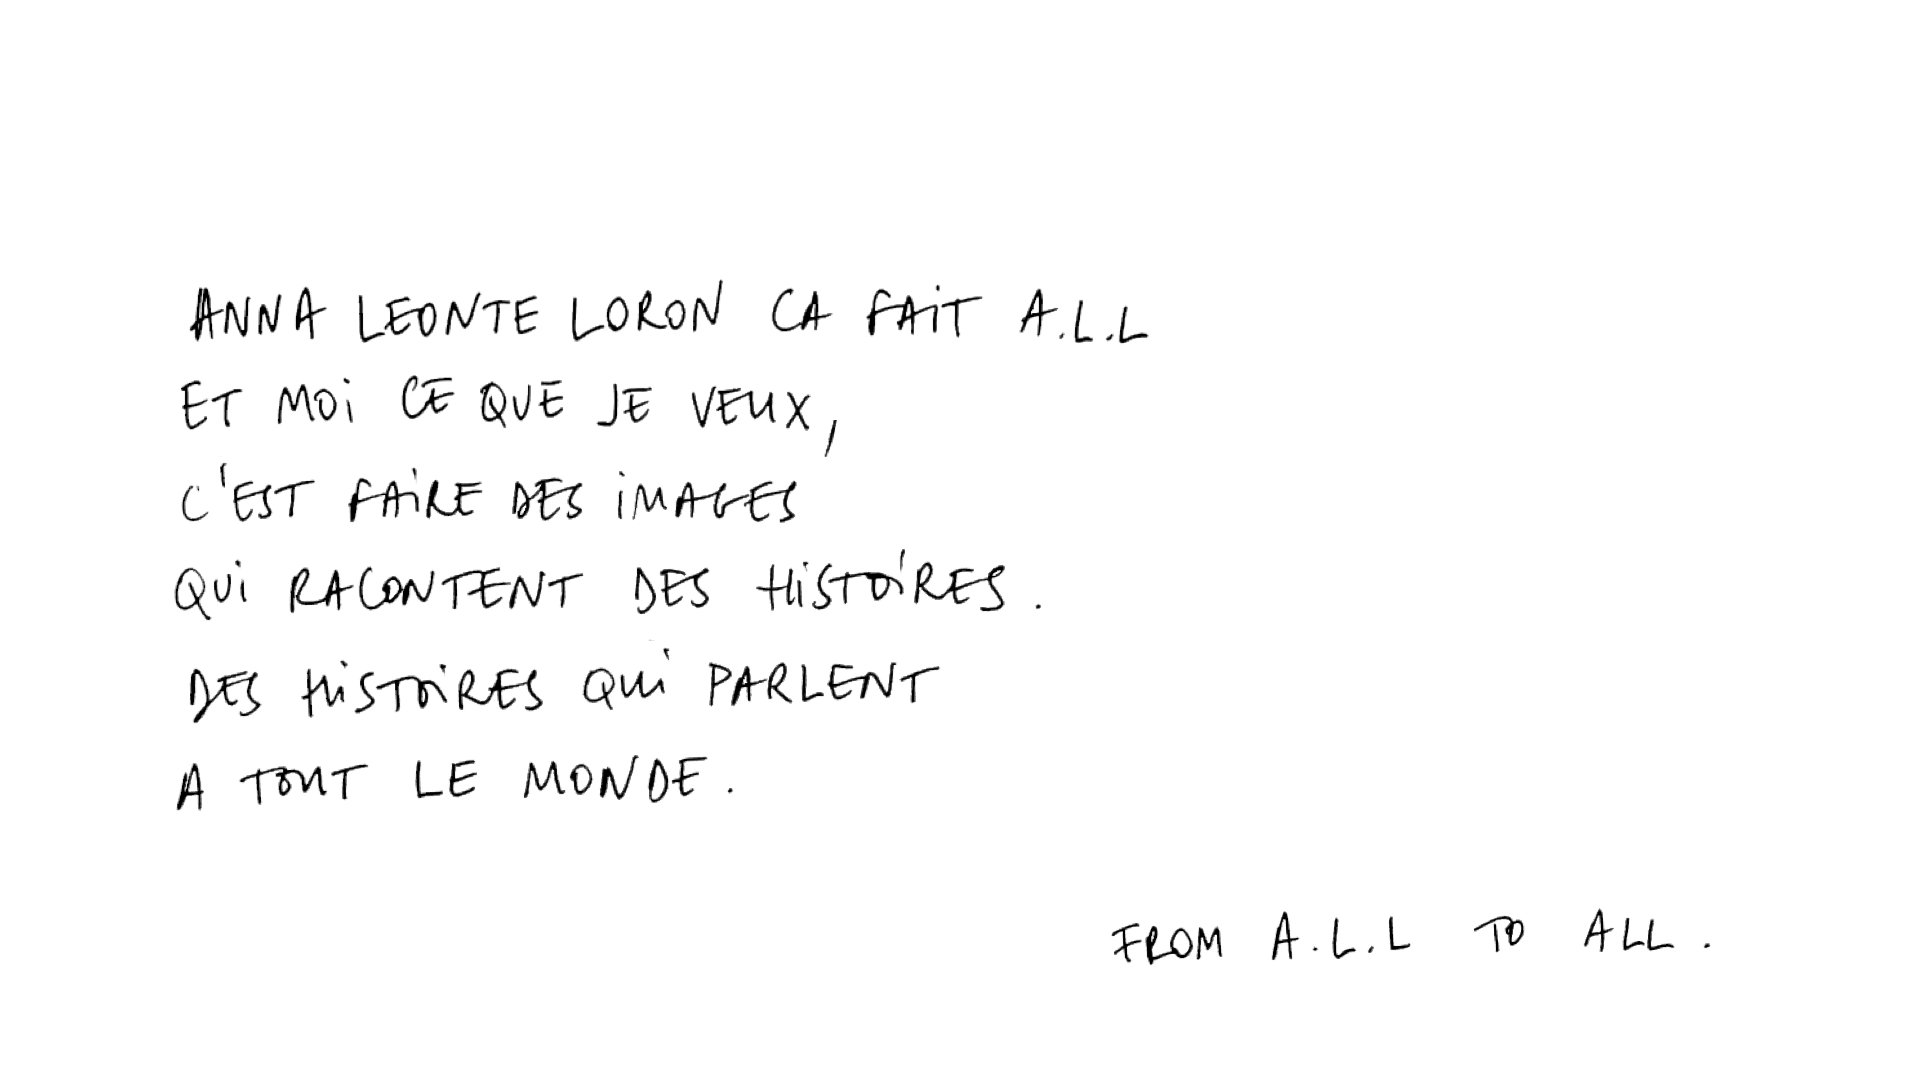 ANNA LEONTE LORON CA FAiT A.L.L
ET MOi CE QUE JE VEUX,
C'EST FAiRE DES iMAGES
QUi RACONTENT DES HiSTOiRES.
DES HiSTOiRES QUi PARLENT
A TOUT LE MONDE.
FROM A.L.L TO ALL.